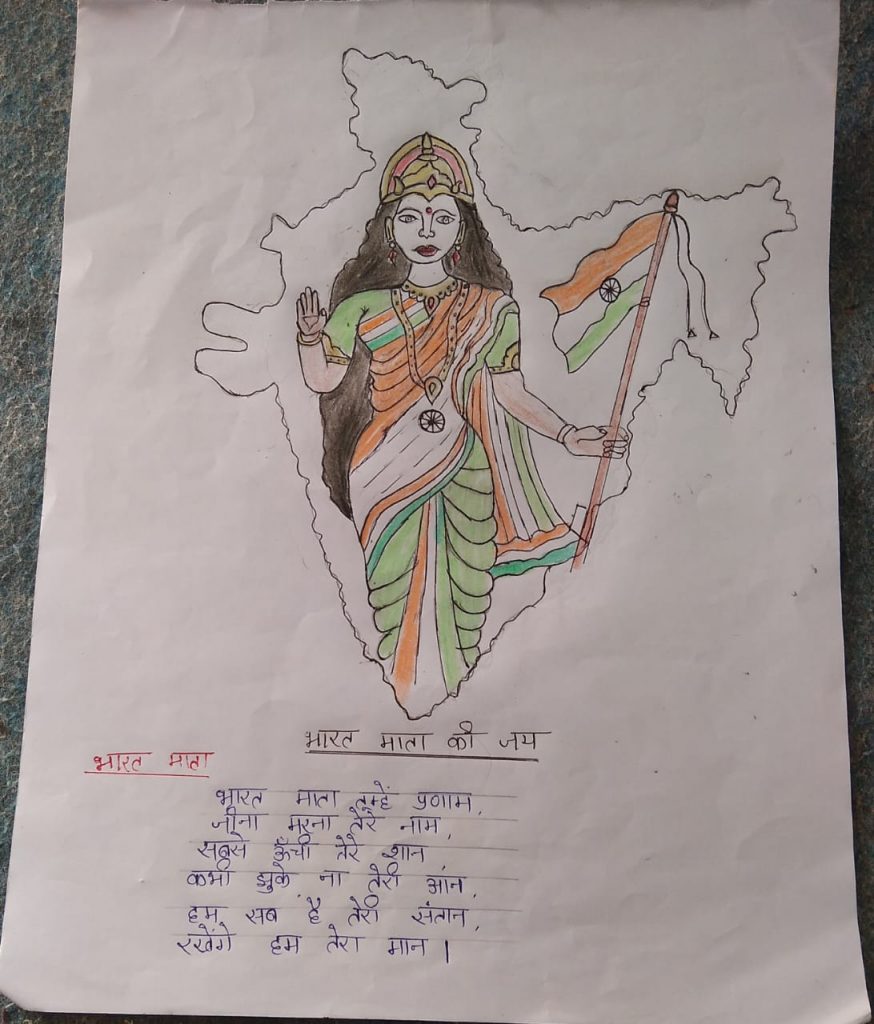 भारत माता की जय
भारत माता
भारत माता तुम्हें प्रणाम,
जीना मरना तेरे नाम,
सबसे ऊँची तेरे शान,
कभी झुके ना तेरी आन,
हम सब है तेरी संतान,
रखेंगे हम तेरा मान ।